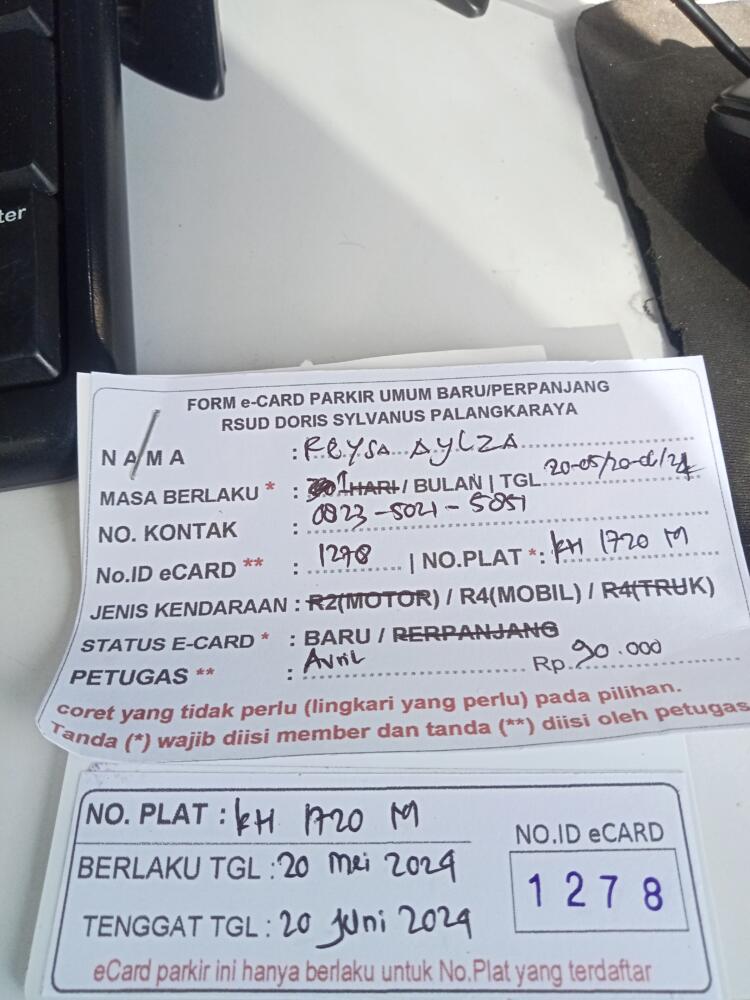 ter
FORM e-CARD PARKIR UMUM BARU/PERPANJANG
RSUD DORIS SYLVANUS PALANGKARAYA
NAMA : REYSA AYLZA
MASA BERLAKU * : 1 HARI / BULAN | TGL 20-05/20-6/24
NO. KONTAK : 0823-5021-5851
No.ID eCARD ** : 1278 | NO.PLAT *: KH 1720 M
JENIS KENDARAAN : R2(MOTOR) / R4(MOBIL) / R4(TRUK)
STATUS E-CARD * : BARU / PERPANJANG
PETUGAS ** : Avril Rp. 90.000
coret yang tidak perlu (lingkari yang perlu) pada pilihan.
Tanda (*) wajib diisi member dan tanda (**) diisi oleh petugas
NO. PLAT : KH 1720 M
NO.ID eCARD
BERLAKU TGL : 20 Mei 2024
1278
TENGGAT TGL : 20 Juni 2024
eCard parkir ini hanya berlaku untuk No.Plat yang terdaftar